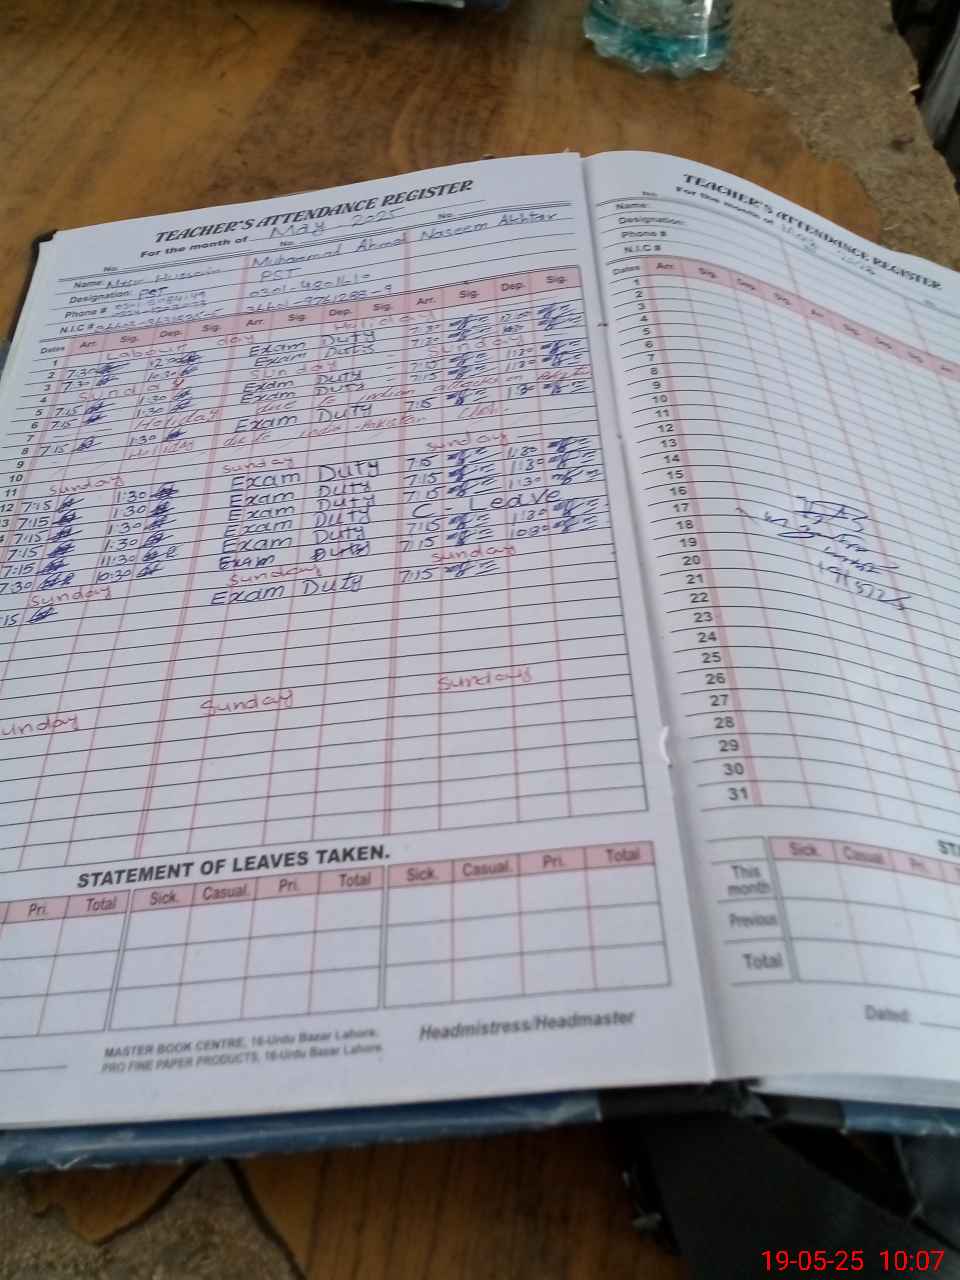 TEACHER'S ATTENDANCE REGISTER
For the month of May 2025
No. No. No.
Name: Hussain Muhammad Ahmad Naseem Akhtar
Designation: PST PST
Phone #
N.I.C #
Dates Arr. Sig. Dep. Sig. Arr. Sig. Dep. Sig. Arr. Sig. Dep. Sig.
1 Labour day Holiday
2 7:30 12:00 Exam Duty 7:30 12:00
3 7:30 Exam Duty 7:30
4 Sunday Sunday Sunday
5 7:15 1:30 Exam Duty 7:15 1:30
6 7:15 1:30 Exam Duty 7:15 1:30
7 Holiday due to indian attacks on
8 7:15 1:30 Exam Duty 7:15 1:30
9 Holiday due to indo-Pakistan
10
11 Sunday Sunday Sunday
12 7:15 1:30 Exam Duty 7:15 1:30
13 7:15 1:30 Exam Duty 7:15 1:30
7:15 1:30 Exam Duty 7:15 1:30
7:15 1:30 Exam Duty C-Leave
7:15 11:30 Exam Duty 7:15 1:30
7:30 10:30 Exam Duty 7:15 10:30
Sunday Sunday Sunday
:15 Exam Duty 7:15
unday Sunday Sunday
STATEMENT OF LEAVES TAKEN.
Pri. Total Sick. Casual. Pri. Total Sick. Casual. Pri. Total
MASTER BOOK CENTRE, 16-Urdu Bazar Lahore.
PRO FINE PAPER PRODUCTS, 16-Urdu Bazar Lahore.
Headmistress/Headmaster
TEACHER'S ATTENDANCE REGISTER
For the month of
No.
Name:
Designation:
Phone #
N.I.C #
Dates Arr. Sig. Dep. Sig. Arr. Sig. Dep. Sig. Arr.
1
2
3
4
5
6
7
8
9
10
11
12
13
14
15
16
17
18
19
20
21
22
23
24
25
26
27
28
29
30
31
STA
Sick. Casual. Pri.
This month
Previous
Total
Dated:
19-05-25 10:07